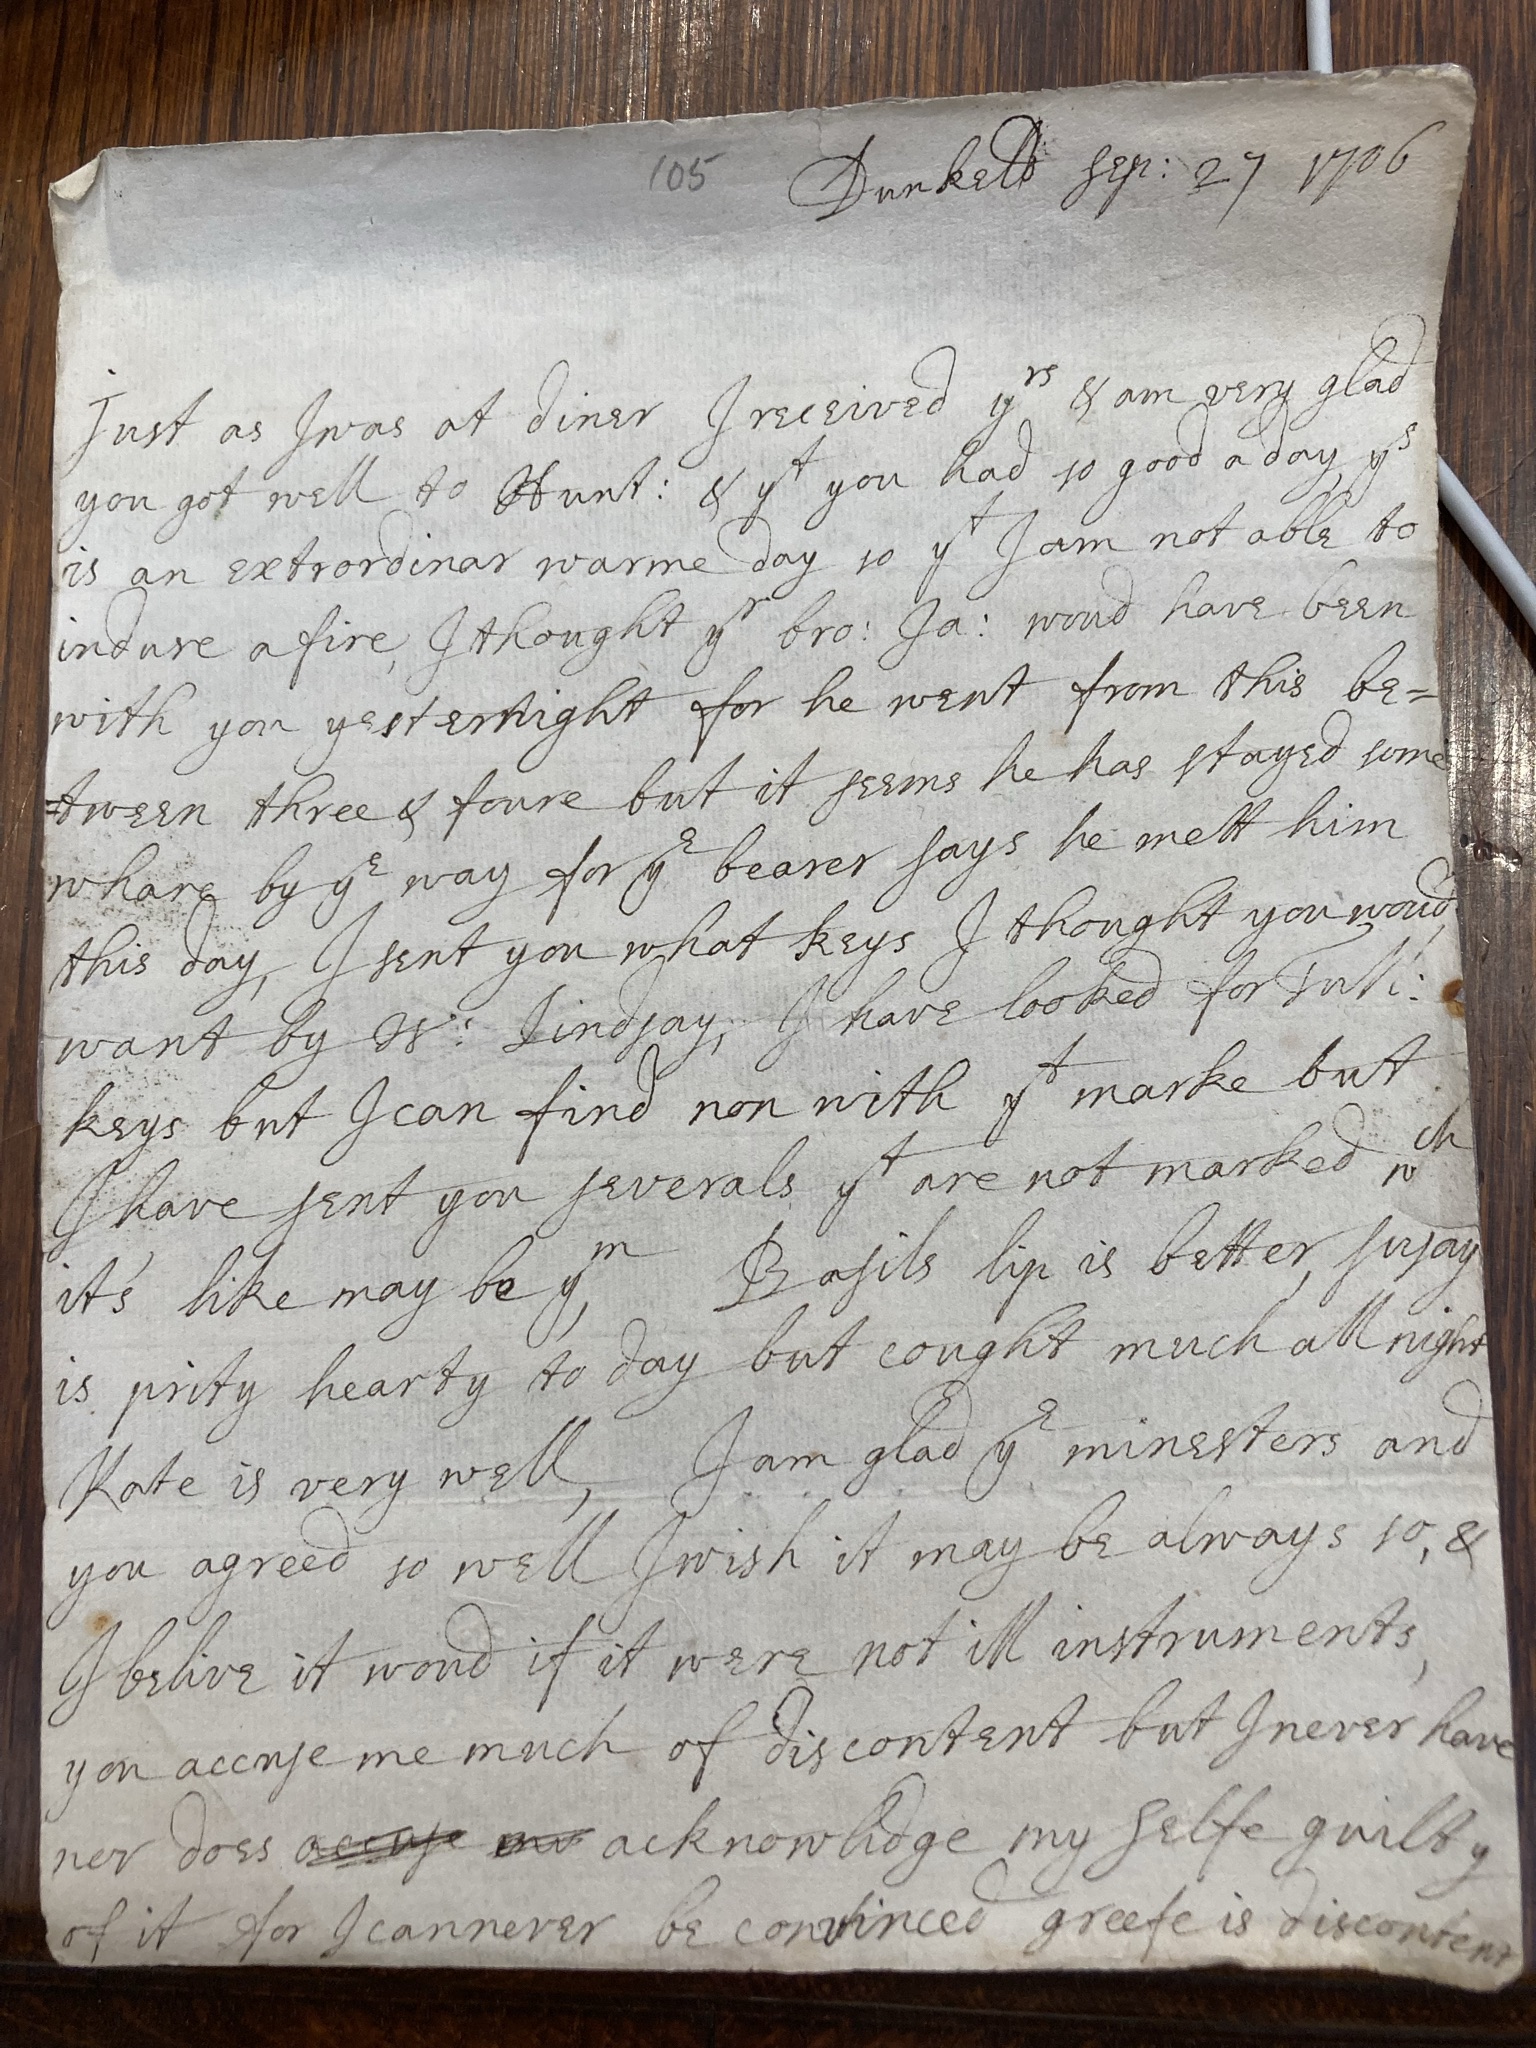 105 Dunkeld Sep: 27 1706
Just as I was at diner I received yrs & am very glad
you got well to Hunt: & yt you had so good a day, ys
is an extrordinar warme day so yt I am not able to
indure a fire, I thought yr bro: Ja: woud have been
with you yesternight for he went from this be=
=tween three & foure but it seems he has stayed some
whare by ye way for ye bearer says he mett him
this day, I sent you what keys I thought you woud
want by W: Lindsay, I have looked for Tull:
keys but I can find non with yt marke but
I have sent you severals yt are not marked wch
it's like may be ym, Basils lip is better, susay
is prity hearty to day but cought much all night
Kate is very well, I am glad ye minesters and
you agreed so well I wish it may be always so, &
I belive it woud if it were not ill instruments,
you accuse me much of discontent but I never have
nor does accuse me acknowlidge my selfe guilty
of it for I cannever be convinced greefe is discontent